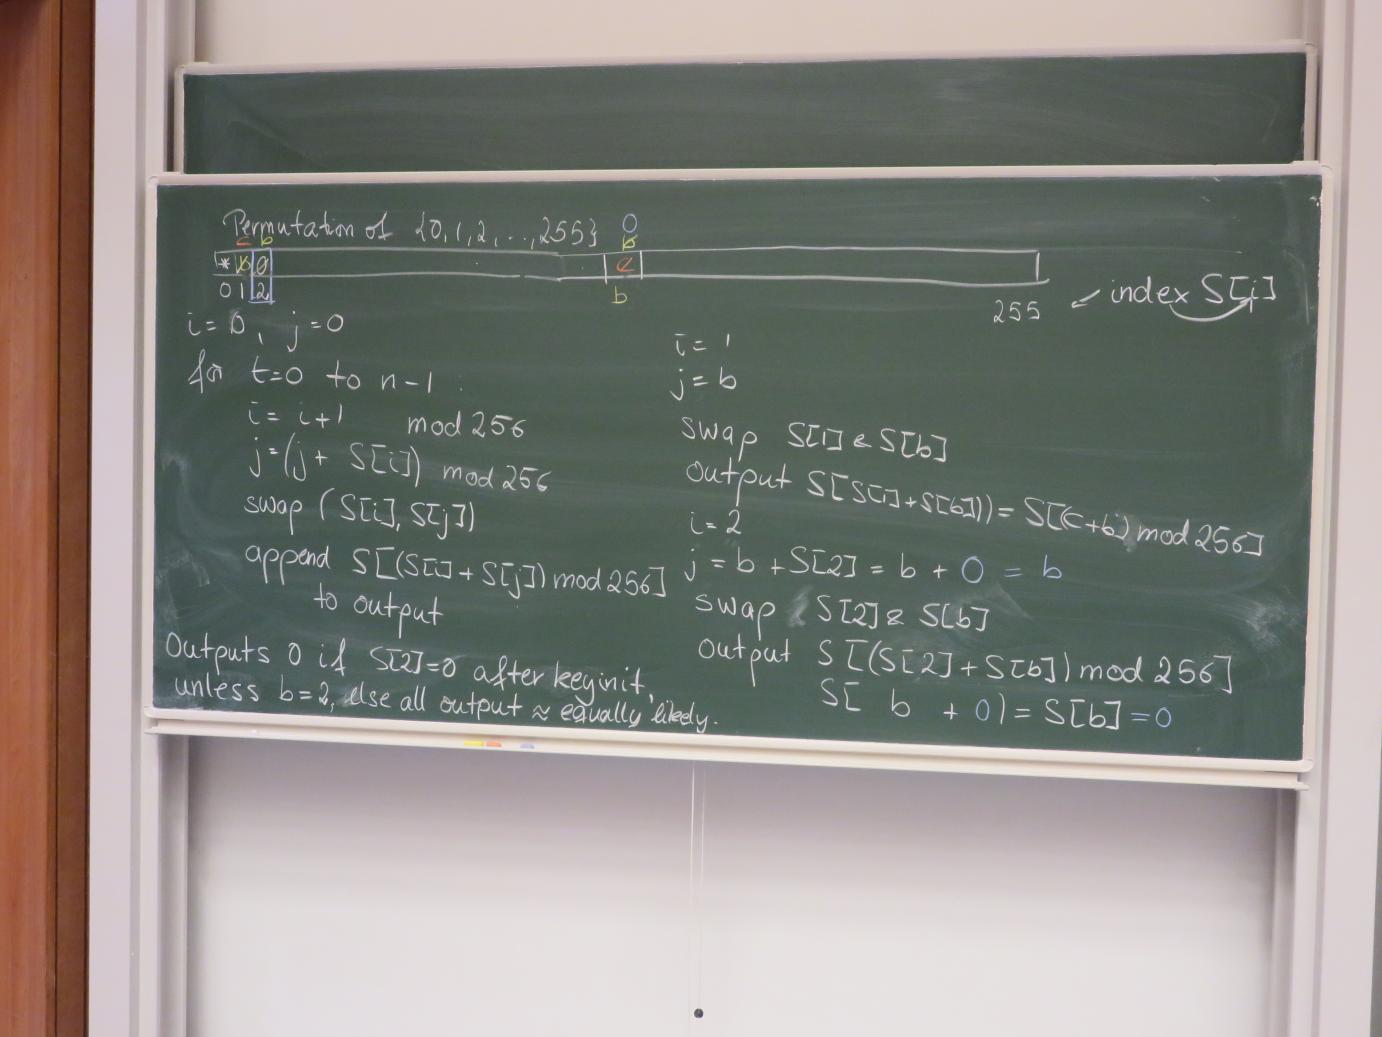 Permutation of {0,1,2,...,255} 0
c b b
* b 0 c
0 1 2 b 255 ← index S[j]
i=0, j=0
for t=0 to n-1:
i= i+1 mod 256
j=(j+ S[i]) mod 256
swap (S[i], S[j])
append S[(S[i]+S[j]) mod 256]
to output
Outputs 0 if S[2]=0 after keyinit,
unless b=2, else all output ≈ equally likely.
i= 1
j= b
swap S[1] & S[b]
output S[S[1]+S[b])) = S[(c+b) mod 256]
i=2
j = b +S[2] = b + 0 = b
swap S[2] & S[b]
output S[(S[2]+S[b]) mod 256]
S[ b + 0) = S[b] =0